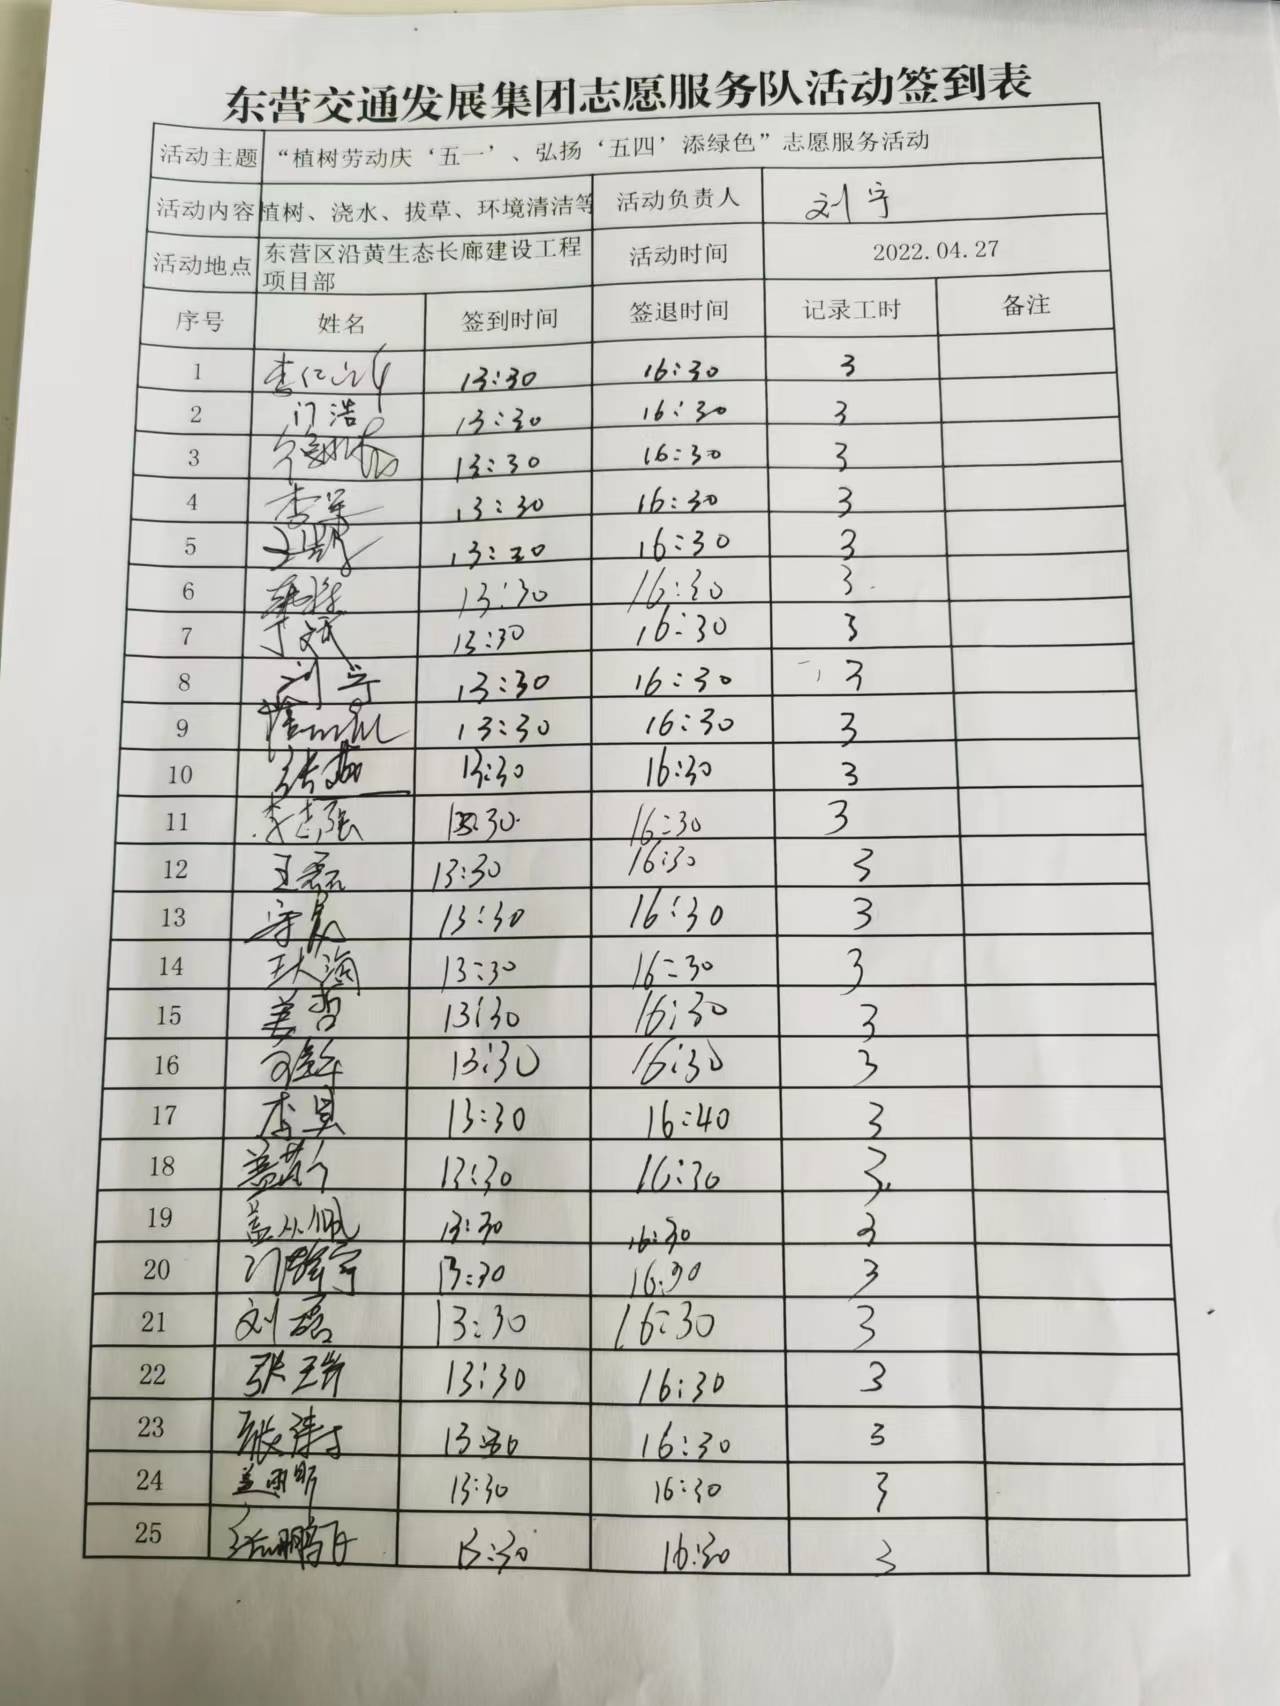 东营交通发展集团志愿服务队活动签到表
活动主题 “植树劳动庆‘五一’、弘扬‘五四’添绿色”志愿服务活动
活动内容 植树、浇水、拔草、环境清洁等 活动负责人 刘宁
活动地点 东营区沿黄生态长廊建设工程 活动时间 2022.04.27
项目部
序号 姓名 签到时间 签退时间 记录工时 备注
1 13:30 16:30 3
2 门浩 13:30 16:30 3
3 13:30 16:30 3
4 13:30 16:30 3
5 16:30 3
6 13:30 16:30 3
7 13:30 16:30 3
8 刘宁 13:30 16:30 3
9 13:30 16:30 3
10 13:30 16:30 3
11 李志强 16:30 3
12 王磊 13:30 16:30 3
13 13:30 16:30 3
14 王大海 13:30 16:30 3
15 姜哲 13:30 16:30 3
16 13:30 16:30 3
17 13:30 16:40 3
18 13:30 16:30 3
19 13:30 16:30 3
20 13:30 16:30 3
21 刘磊 13:30 16:30 3
22 13:30 16:30 3
23 13:30 16:30 3
24 13:30 16:30 3
25 张鹏飞 13:30 16:30 3